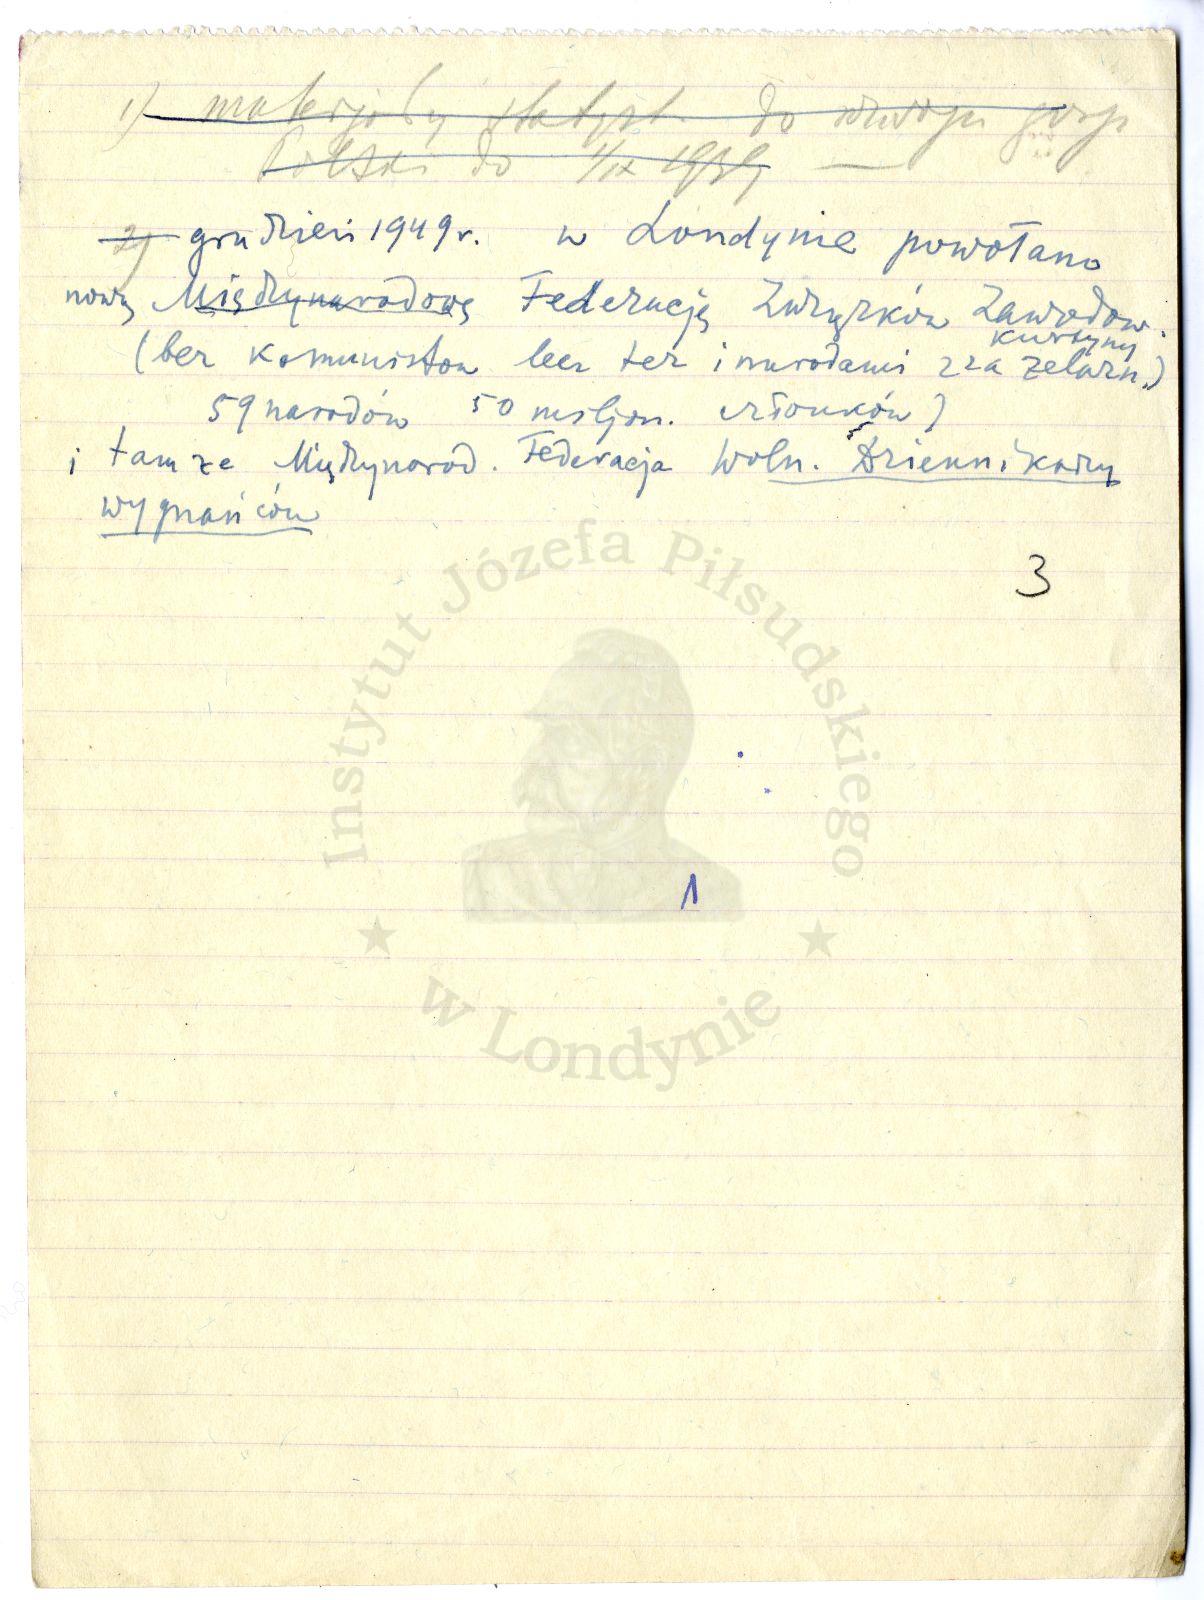 1) materjały statyst. do rozwoju gosp.
Polski do 1/IX 1939 —
2) grudzień 1949 r. w Londynie powołano
nową Międzynarodową Federację Związków Zawodow.
(bez komunistow lecz też i narodami zza żelazn.)
kurtyny
59 narodów 50 miljon. członków)
i tam że Międzynarod. Federacja Woln. Dziennikarzy
wygnańców
3
1
Instytut Józefa Piłsudskiego
w Londynie